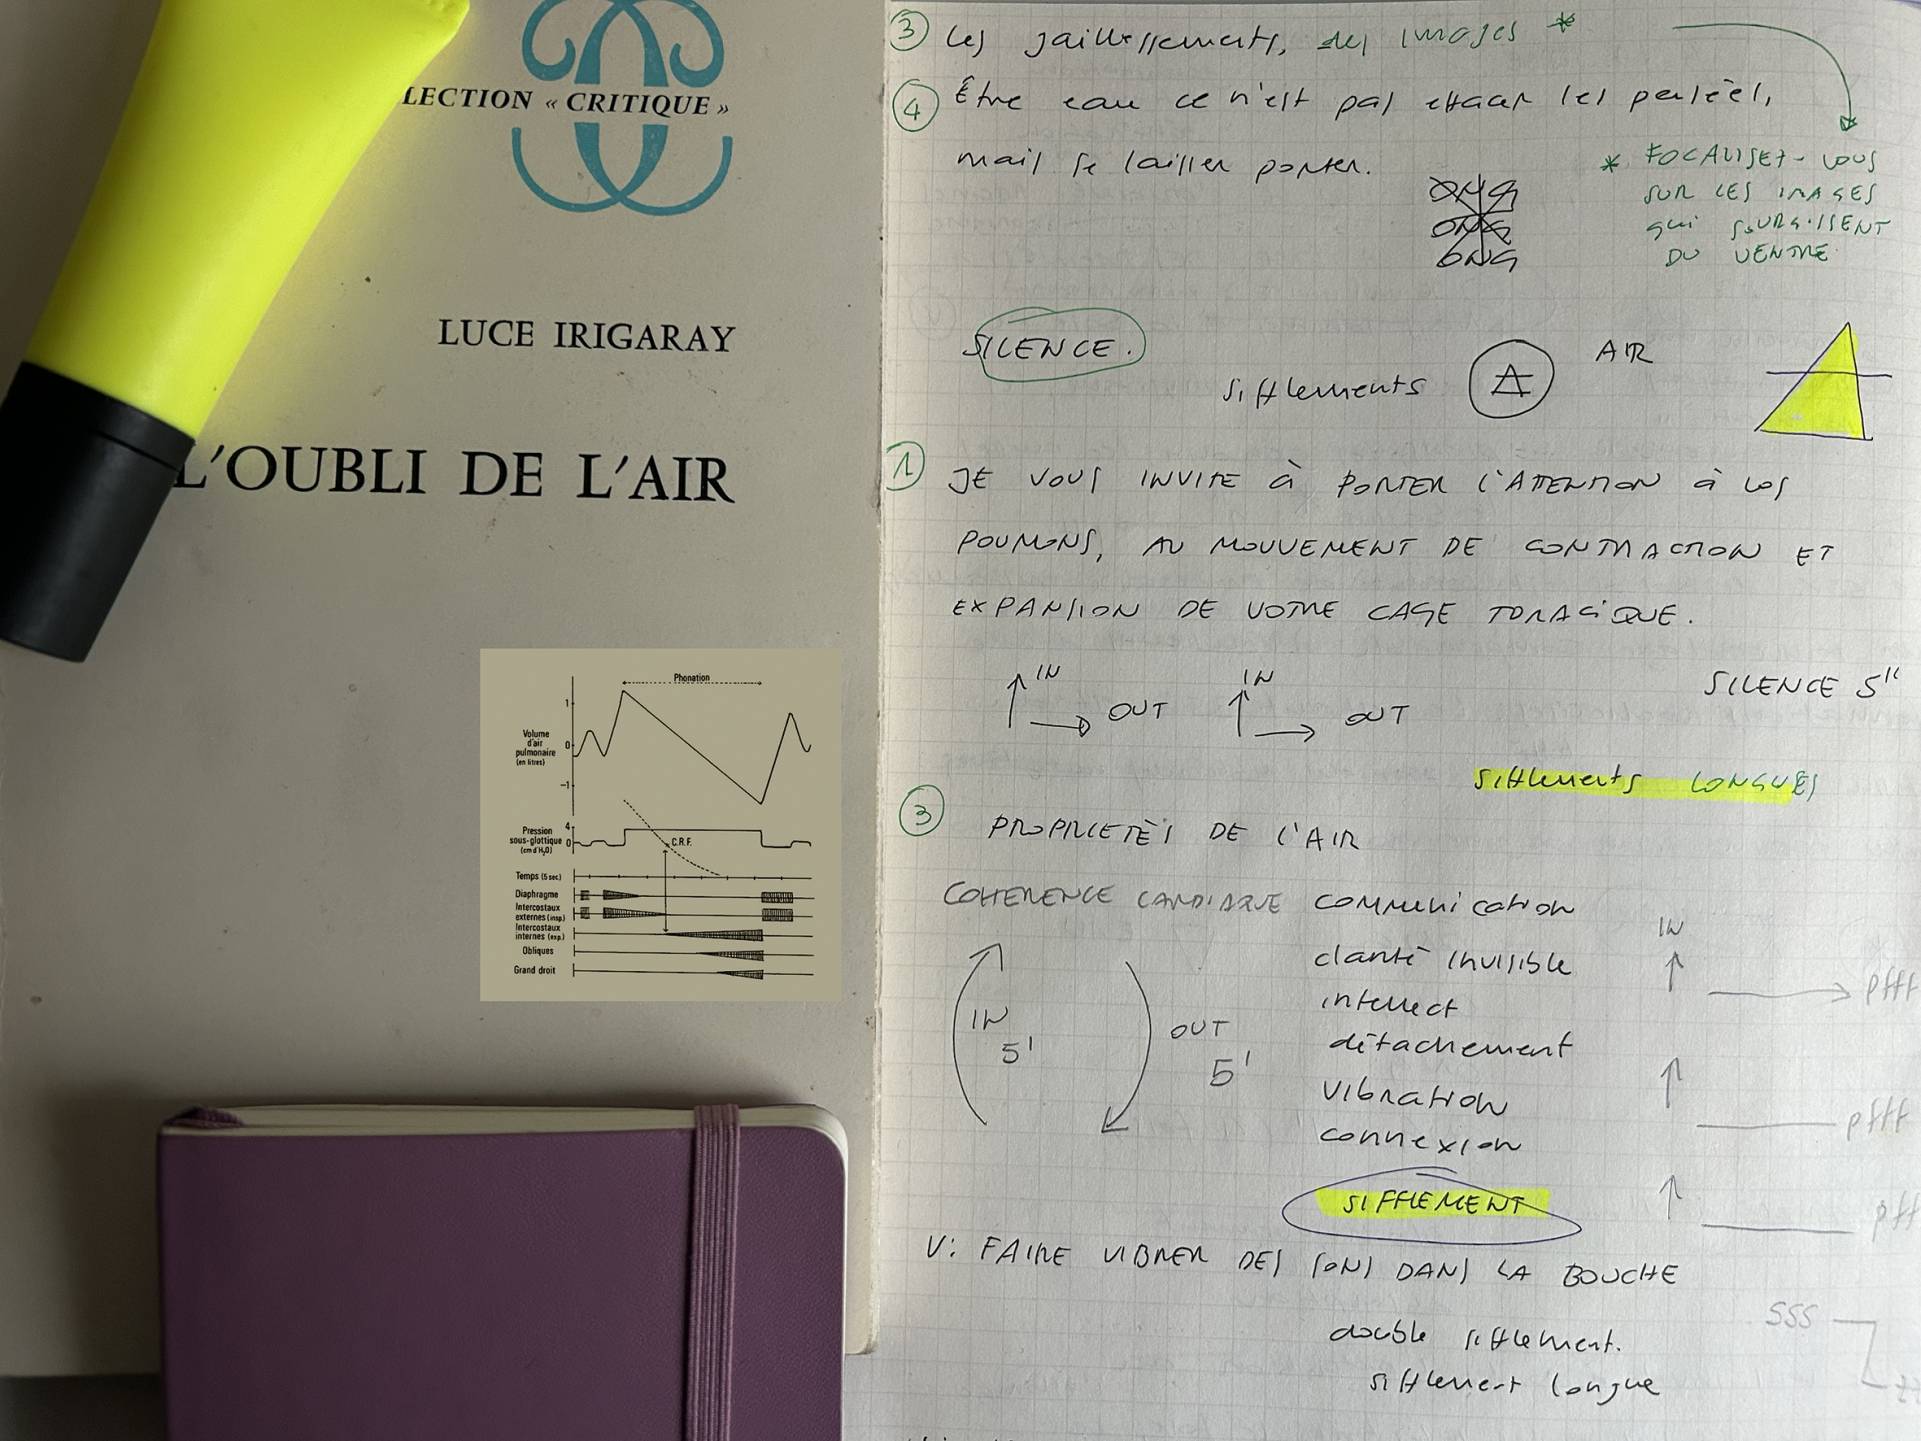 LECTION « CRITIQUE »
LUCE IRIGARAY
L'OUBLI DE L'AIR
Phonation
1
Volume
d'air
pulmonaire
(en litres)
0
-1
Pression
sous-glottique
(cm d'H2O)
4
0
C.R.F.
Temps (5 sec)
Diaphragme
Intercostaux
externes (insp.)
Intercostaux
internes (exp.)
Obliques
Grand droit
3 les jaillissements, des images *
4 Être eau ce n'est pas effacer les penséès,
mais se laisser porter.
* FOCALISEZ-VOUS
SUR LES IMAGES
qui SURGISSENT
DU VENTRE
ONG
ONG
ONG
SILENCE.
sifflements
A
AIR
1 JE VOUS INVITE à PORTER L'ATTENTION à vos
POUMONS, AU MOUVEMENT DE CONTRACTION ET
EXPANSION DE VOTRE CAGE TORACIQUE.
IN OUT IN OUT
SILENCE 5"
sifflements LONGUES
3 PROPRIETÈS DE L'AIR
COHERENCE CARDIAQUE
IN
5'
OUT
5'
communication
clartè invisible
intellect
détachement
vibration
connexion
SIFFLEMENT
IN
pfff
pfff
pff
V: FAIRE VIBRER DES SONS DANS LA BOUCHE
double sifflement.
sifflement longue
SSS